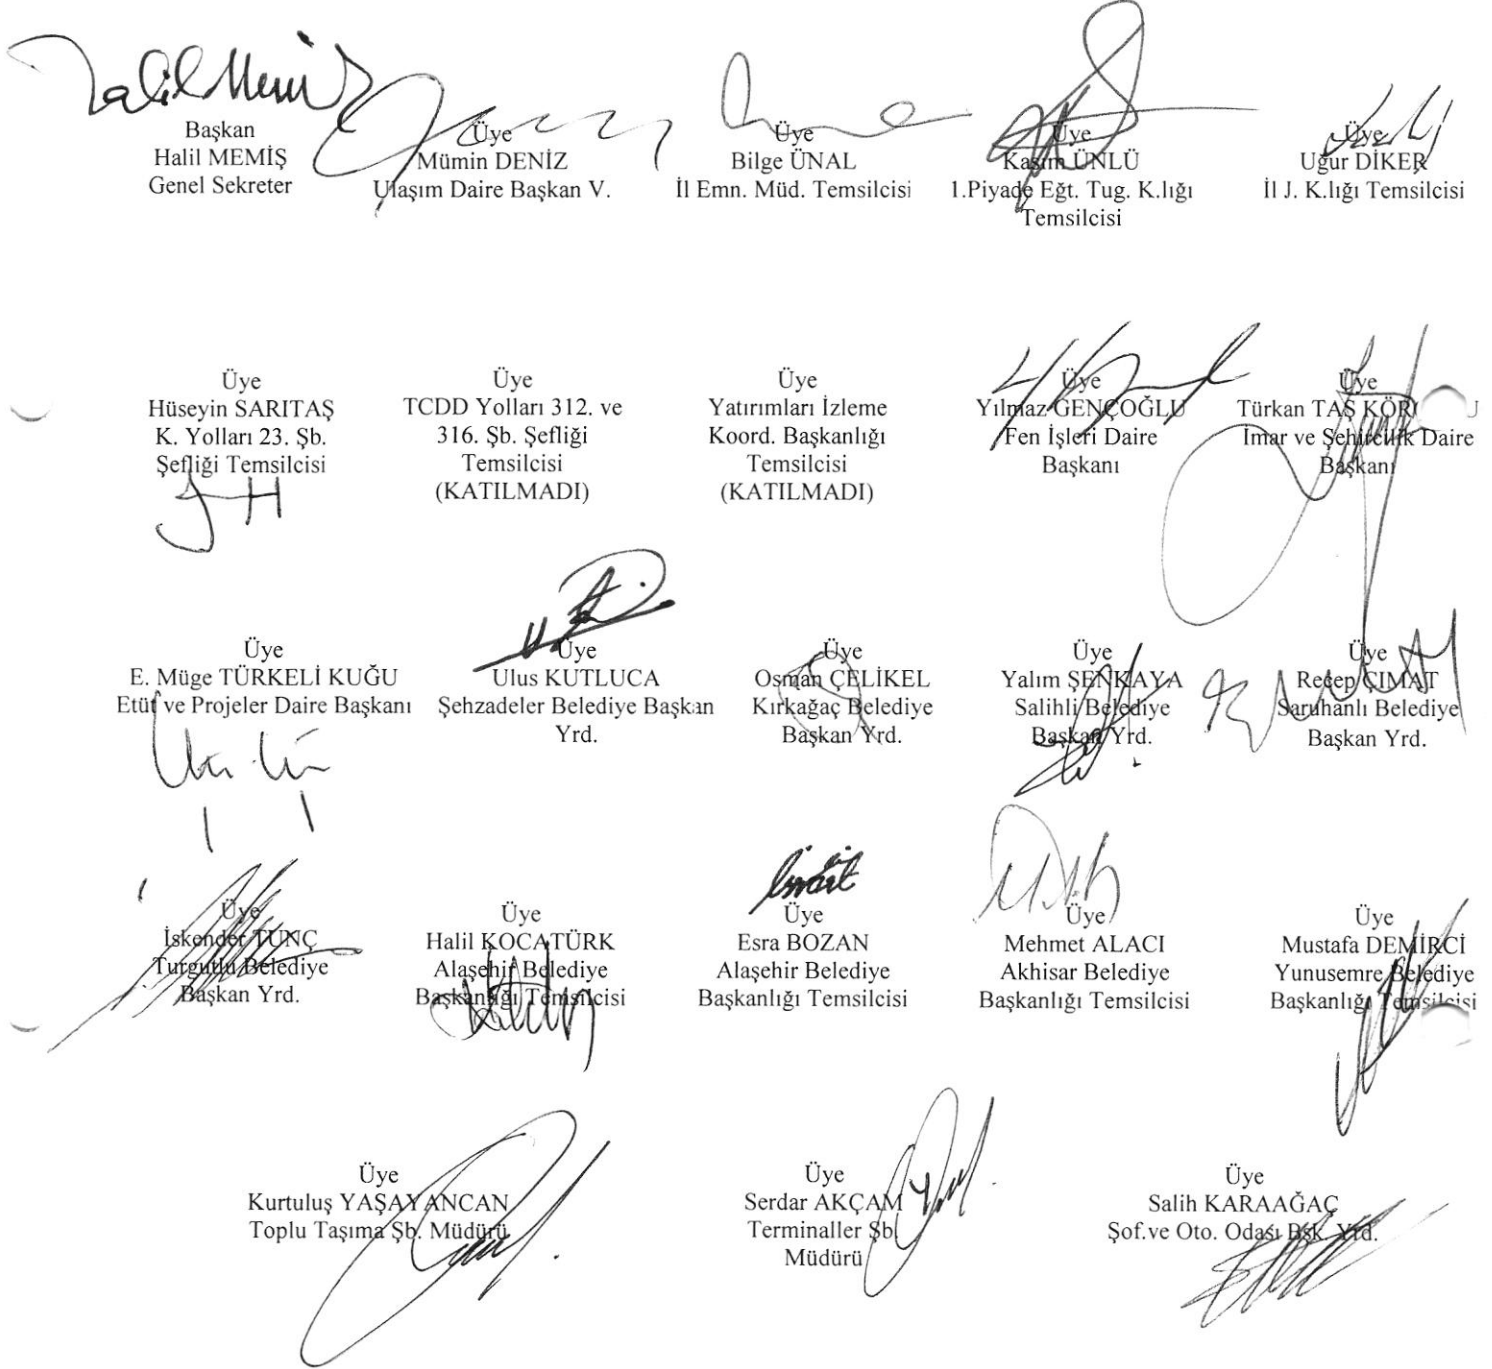 Halil Memiş
Başkan
Halil MEMİŞ
Genel Sekreter
Üye
Mümin DENİZ
Ulaşım Daire Başkan V.
Üye
Bilge ÜNAL
İl Emn. Müd. Temsilcisi
Üye
Kasım ÜNLÜ
1.Piyade Eğt. Tug. K.lığı
Temsilcisi
Üye
Uğur DİKER
İl J. K.lığı Temsilcisi
Üye
Hüseyin SARITAŞ
K. Yolları 23. Şb.
Şefliği Temsilcisi
Üye
TCDD Yolları 312. ve
316. Şb. Şefliği
Temsilcisi
(KATILMADI)
Üye
Yatırımları İzleme
Koord. Başkanlığı
Temsilcisi
(KATILMADI)
Üye
Yılmaz GENÇOĞLU
Fen İşleri Daire
Başkanı
Üye
Türkan TAŞ
İmar ve Şehircilik Daire
Başkanı
Üye
E. Müge TÜRKELİ KUĞU
Etüt ve Projeler Daire Başkanı
Üye
Ulus KUTLUCA
Şehzadeler Belediye Başkan
Yrd.
Üye
Osman ÇELİKEL
Kırkağaç Belediye
Başkan Yrd.
Üye
Yalım ŞENKAYA
Salihli Belediye
Başkan Yrd.
Üye
Recep ÇIMAT
Saruhanlı Belediye
Başkan Yrd.
Üye
İskender TUNÇ
Turgutlu Belediye
Başkan Yrd.
Üye
Halil KOCATÜRK
Alaşehir Belediye
Başkanlığı Temsilcisi
Üye
Esra BOZAN
Alaşehir Belediye
Başkanlığı Temsilcisi
Üye
Mehmet ALACI
Akhisar Belediye
Başkanlığı Temsilcisi
Üye
Mustafa DEMİRCİ
Yunusemre Belediye
Başkanlığı Temsilcisi
Üye
Kurtuluş YAŞAYANCAN
Toplu Taşıma Şb. Müdürü
Üye
Serdar AKÇAM
Terminaller Şb.
Müdürü
Üye
Salih KARAAĞAÇ
Şof.ve Oto. Odası Bşk. Yrd.